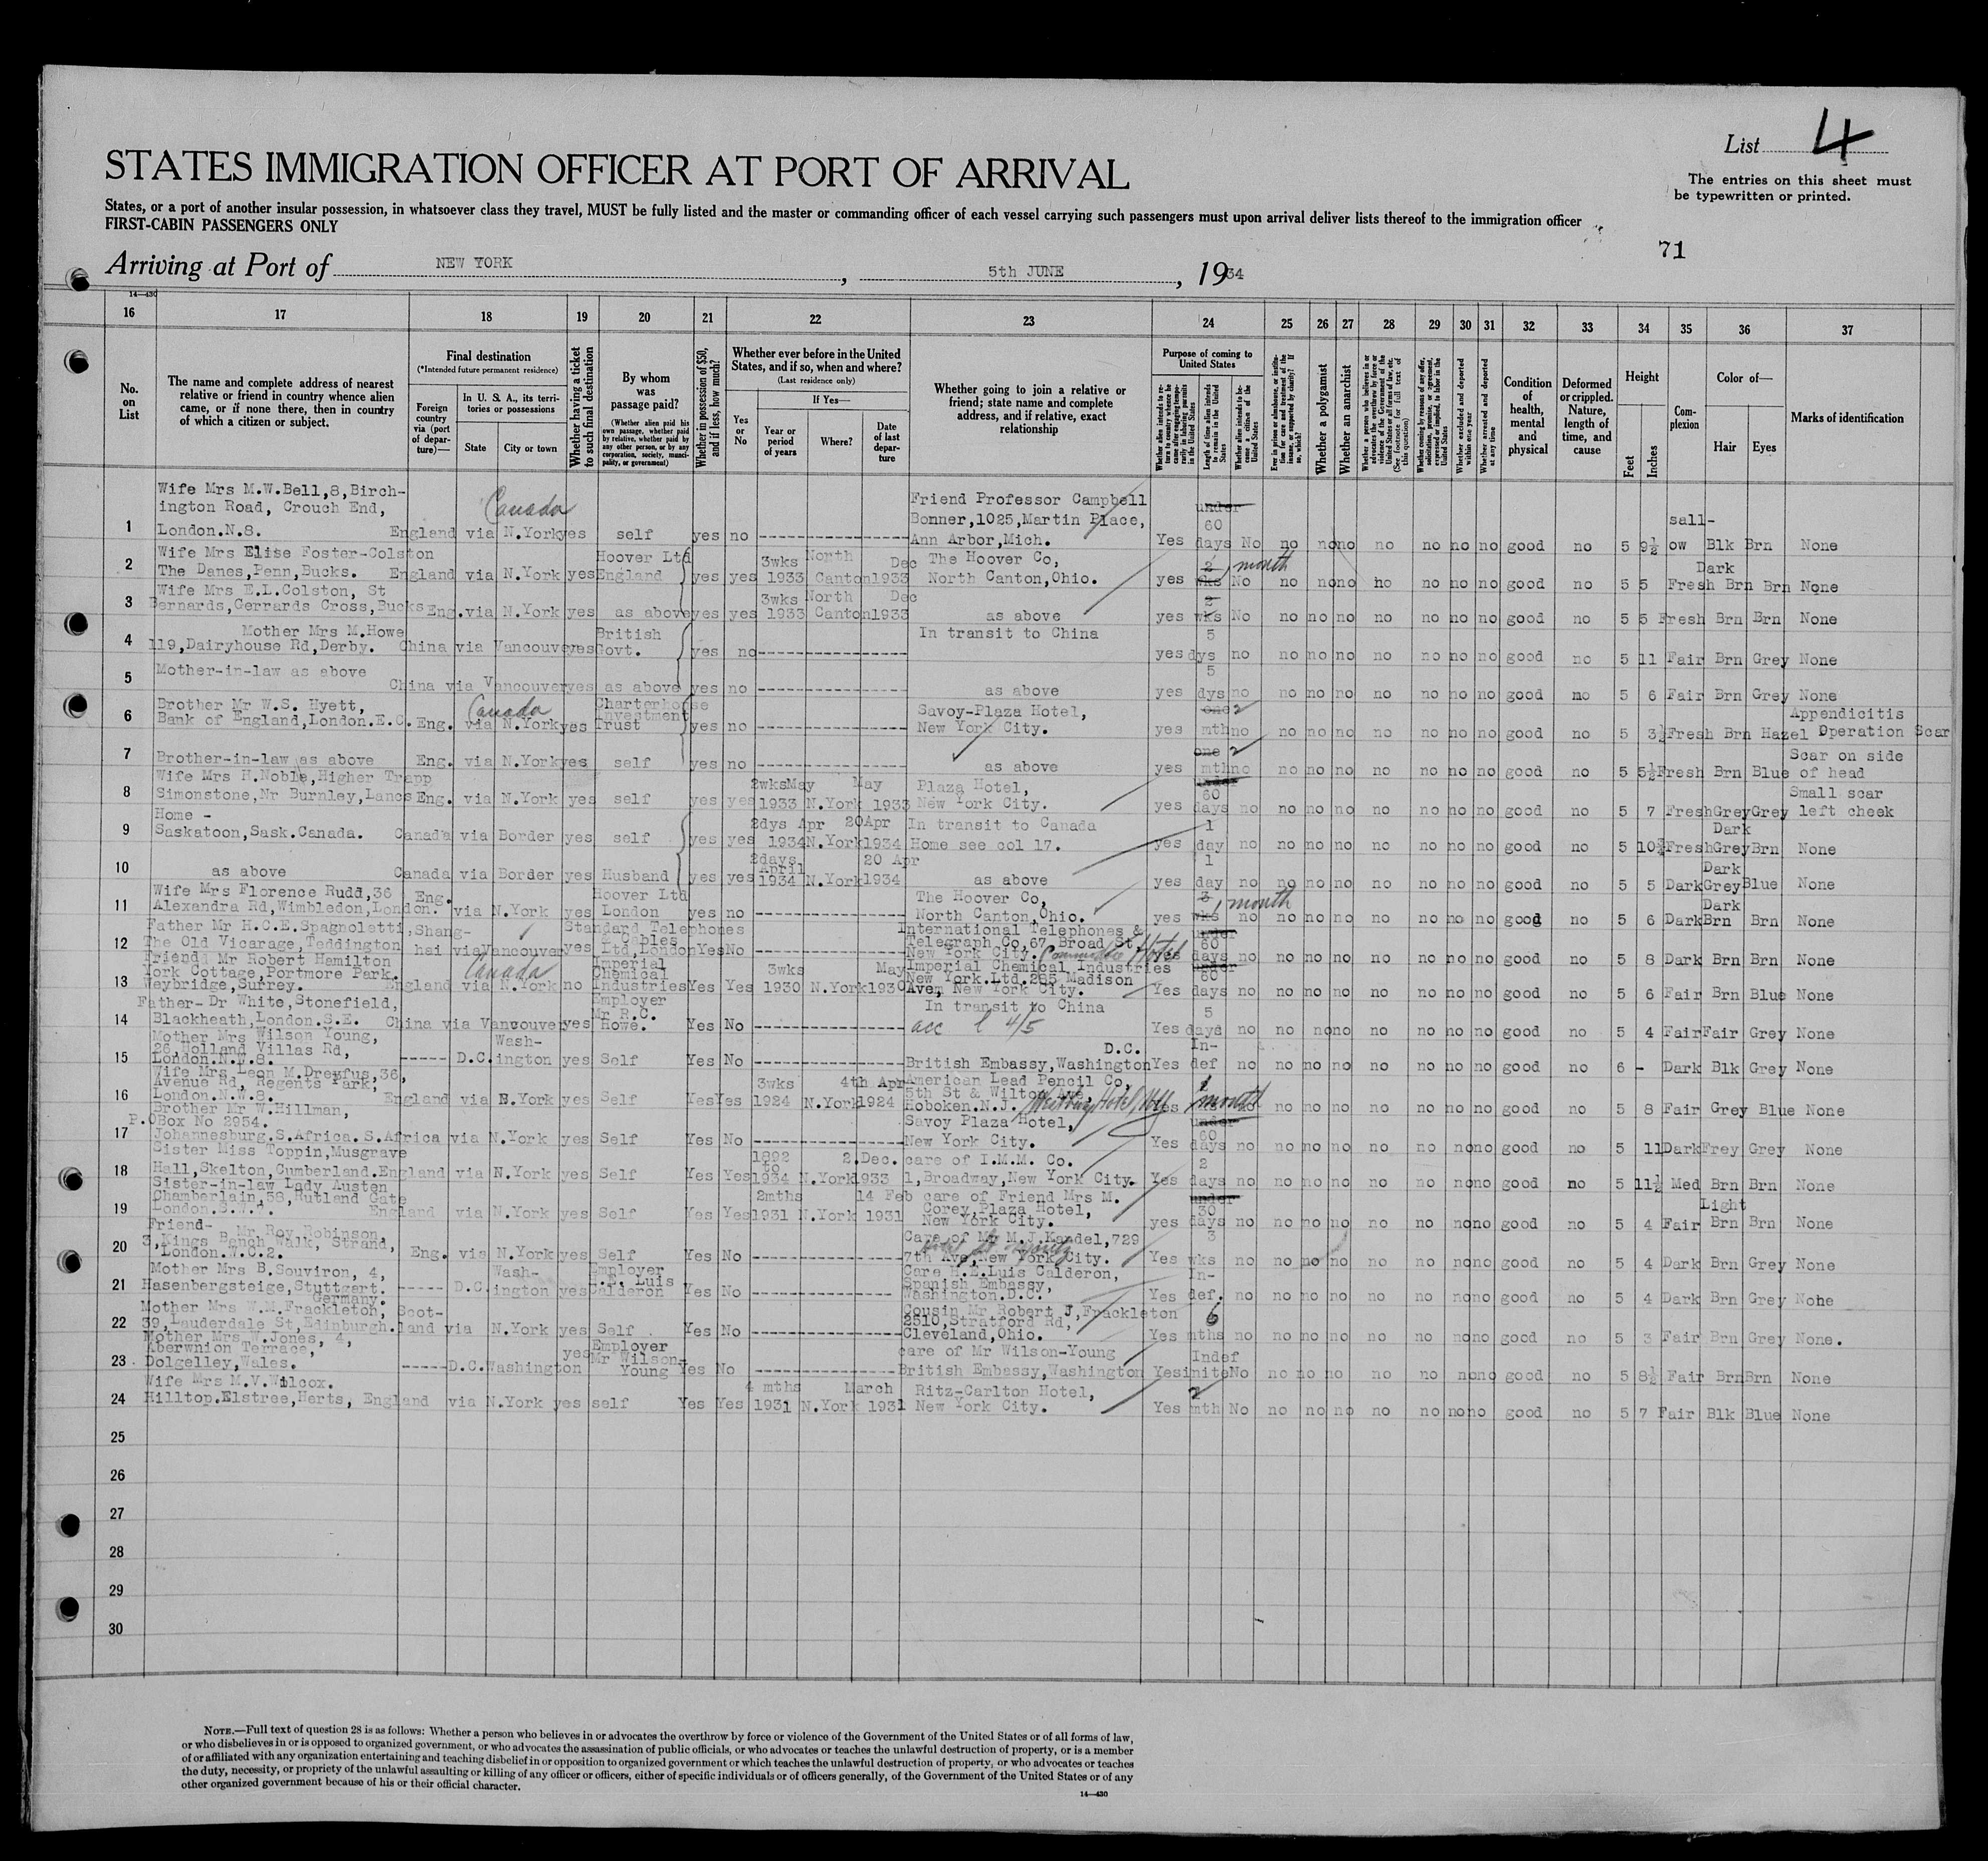 List 4
STATES IMMIGRATION OFFICER AT PORT OF ARRIVAL
The entries on this sheet must
be typewritten or printed.
States, or a port of another insular possession, in whatsoever class they travel, MUST be fully listed and the master or commanding officer of each vessel carrying such passengers must upon arrival deliver lists thereof to the immigration officer
FIRST-CABIN PASSENGERS ONLY
71
Arriving at Port of NEW YORK, 5th JUNE, 1934
14—430
16 17 18 19 20 21 22 23 24 25 26 27 28 29 30 31 32 33 34 35 36 37
No. on List
The name and complete address of nearest relative or friend in country whence alien came, or if none there, then in country of which a citizen or subject.
Final destination
(*Intended future permanent residence)
Foreign country via (port of departure)—
In U. S. A., its territories or possessions
State City or town
Whether having a ticket to such final destination
By whom was passage paid?
(Whether alien paid his own passage, whether paid by relative, whether paid by any other person, or by any corporation, society, municipality, or government)
Whether in possession of $50, and if less, how much?
Whether ever before in the United States, and if so, when and where?
(Last residence only)
Yes or No
If Yes—
Year or period of years Where? Date of last departure
Whether going to join a relative or friend; state name and complete address, and if relative, exact relationship
Purpose of coming to United States
Whether alien intends to return to country whence he came after engaging temporarily in laboring pursuits in the United States
Length of time alien intends to remain in the United States
Whether alien intends to become a citizen of the United States
Ever in prison or almshouse, or institution for care and treatment of the insane, or supported by charity? If so, which?
Whether a polygamist
Whether an anarchist
Whether a person who believes in or advocates the overthrow by force or violence of the Government of the United States or all forms of law, etc. (See footnote for full text of this question)
Whether coming by reasons of any offer, solicitation, promise, or agreement, expressed or implied, to labor in the United States
Whether excluded and deported within one year
Whether arrested and deported at any time
Condition of health, mental and physical
Deformed or crippled. Nature, length of time, and cause
Height
Feet Inches
Complexion
Color of—
Hair Eyes
Marks of identification
1 Wife Mrs M.W.Bell,8,Birchington Road, Crouch End, London.N.8. England via N.York Canada yes self yes no Friend Professor Campbell Bonner,1025,Martin Place, Ann Arbor,Mich. Yes under 60 days No no no no no no no no good no 5 9½ sallow Blk Brn None
2 Wife Mrs Elise Foster-Colston The Danes,Penn,Bucks. England via N.York yes Hoover Ltd England yes yes 3wks 1933 North Canton Dec 1933 The Hoover Co, North Canton,Ohio. yes 2 wks 1 month No no no no no no no no good no 5 5 Fresh Dark Brn Brn None
3 Wife Mrs E.L.Colston, St Bernards,Gerrards Cross,Bucks Eng. via N.York yes as above yes yes 3wks 1933 North Canton Dec 1933 as above yes 2 wks No no no no no no no no good no 5 5 Fresh Brn Brn None
4 Mother Mrs M.Howe 119,Dairyhouse Rd,Derby. China via Vancouver yes British Govt. yes no In transit to China yes 5 dys no no no no no no no no good no 5 11 Fair Brn Grey None
5 Mother-in-law as above China via Vancouver yes as above yes no as above yes 5 dys no no no no no no no no good no 5 6 Fair Brn Grey None
6 Brother Mr W.S. Hyett, Bank of England,London.E.C. Eng. via N.York Canada yes Charterhouse Investment Trust yes no Savoy-Plaza Hotel, New York City. yes one 2 mth no no no no no no no no good no 5 3½ Fresh Brn Hazel Appendicitis Operation Scar
7 Brother-in-law as above Eng. via N.York yes self yes no as above yes one 2 mth no no no no no no no no good no 5 5½ Fresh Brn Blue Scar on side of head
8 Wife Mrs H.Noble,Higher Trapp Simonstone,Nr Burnley,Lancs Eng. via N.York yes self yes yes 2wks May 1933 N.York May 1933 Plaza Hotel, New York City. yes under 60 days no no no no no no no no good no 5 7 Fresh Grey Grey Small scar left cheek
9 Home - Saskatoon,Sask.Canada. Canada via Border yes self yes yes 2dys Apr 1934 N.York 20 Apr 1934 In transit to Canada Home see col 17. yes 1 day no no no no no no no no good no 5 10½ Fresh Dark Grey Brn None
10 as above Canada via Border yes Husband yes yes 2days April 1934 N.York 20 Apr 1934 as above yes 1 day no no no no no no no no good no 5 5 Dark Dark Grey Blue None
11 Wife Mrs Florence Rudd,36 Alexandra Rd,Wimbledon,London. Eng. via N.York yes Hoover Ltd London yes no The Hoover Co, North Canton,Ohio. yes 3 wks 1 month no no no no no no no no good no 5 6 Dark Dark Brn Brn None
12 Father Mr H.C.E.Spagnoletti, The Old Vicarage,Teddington Shanghai via Vancouver yes Standard Telephones & Cables Ltd,London Yes No International Telephones & Telegraph Co,67 Broad St, New York City. Hotel under 60 days no no no no no no no no good no 5 8 Dark Brn Brn None
13 Friend Mr Robert Hamilton York Cottage,Portmore Park. Weybridge,Surrey. England via N.York Canada no Imperial Chemical Industries Yes Yes 3wks 1930 N.York May 1930 Imperial Chemical Industries New York.Ltd.285 Madison Ave, New York City. Yes under 60 days no no no no no no no no good no 5 6 Fair Brn Blue None
14 Father-Dr White,Stonefield, Blackheath,London.S.E. China via Vancouver yes Employer Mr R.C. Howe. Yes No In transit to China acc 4/5 Yes 5 days no no no no no no no no good no 5 4 Fair Fair Grey None
15 Mother Mrs Wilson Young, 26,Holland Villas Rd, London.N.W.8. D.C. Washington yes Self Yes No British Embassy,Washington D.C. Yes Indef no no no no no no no no good no 6 - Dark Blk Grey None
16 Wife Mrs Leon M.Dreyfus,36, Avenue Rd, Regents Park, London.N.W.8. England via N.York yes Self Yes Yes 3wks 1924 N.York 4th Apr 1924 American Lead Pencil Co, 5th St & Wilton Ave, Hoboken.N.J. Yes 1 month no no no no no no no good no 5 8 Fair Grey Blue None
17 Brother Mr W.Hillman, P.OBox No 2954. Johannesburg.S.Africa. S.Africa via N.York yes Self Yes No Savoy Plaza Hotel, New York City. Yes under 60 days no no no no no no no no good no 5 11 Dark Frey Grey None
18 Sister Miss Toppin,Musgrave Hall,Skelton,Cumberland. England via N.York yes Self Yes Yes 1892 to 1934 N.York 2.Dec. 1933 care of I.M.M. Co. 1,Broadway,New York City. Yes 2 days no no no no no no no no good no 5 11½ Med Brn Brn None
19 Sister-in-law Lady Austen Chamberlain,58,Rutland Gate London.S.W.7. England via N.York yes Self Yes Yes 2mths 1931 N.York 14 Feb 1931 care of Friend Mrs M. Corey,Plaza Hotel, New York City. yes under 30 days no no no no no no no no good no 5 4 Fair Light Brn Brn None
20 Friend- Mr Roy Robinson, 3,Kings Bench Walk, Strand, London.W.C.2. Eng. via N.York yes Self Yes No Care of Mr M.J.Kandel,729 7th Ave,New York City. Yes 3 wks no no no no no no no no good no 5 4 Dark Brn Grey None
21 Mother Mrs B.Souviron, 4, Hasenbergsteige,Stuttgart. Germany. D.C. Washington yes Employer H.E. Luis Calderon Yes No Care H.E.Luis Calderon, Spanish Embassy, Washington.D.C. Yes Indef. no no no no no no no no good no 5 4 Dark Brn Grey None
22 Mother Mrs W.M.Frackleton, 39,Lauderdale St,Edinburgh. Scotland via N.York yes Self Yes No Cousin Mr Robert J,Frackleton 2510,Stratford Rd, Cleveland,Ohio. Yes 6 mths no no no no no no no no good no 5 3 Fair Brn Grey None.
23 Mother Mrs W.Jones, 4, Aberwnion Terrace, Dolgelley,Wales. D.C. Washington yes Employer Mr Wilson Young Yes No care of Mr Wilson-Young British Embassy,Washington Yes Indefinite No no no no no no no no good no 5 8½ Fair Brn Brn None
24 Wife Mrs M.V.Wilcox. Hilltop.Elstree,Herts, England via N.York yes self Yes Yes 4 mths 1931 N.York March 1931 Ritz-Carlton Hotel, New York City. Yes 2 mth No no no no no no no no good no 5 7 Fair Blk Blue None
25
26
27
28
29
30
NOTE.—Full text of question 28 is as follows: Whether a person who believes in or advocates the overthrow by force or violence of the Government of the United States or of all forms of law,
or who disbelieves in or is opposed to organized government, or who advocates the assassination of public officials, or who advocates or teaches the unlawful destruction of property, or is a member
of or affiliated with any organization entertaining and teaching disbelief in or opposition to organized government or which teaches the unlawful destruction of property, or who advocates or teaches
the duty, necessity, or propriety of the unlawful assaulting or killing of any officer or officers, either of specific individuals or of officers generally, of the Government of the United States or of any
other organized government because of his or their official character.
14—430